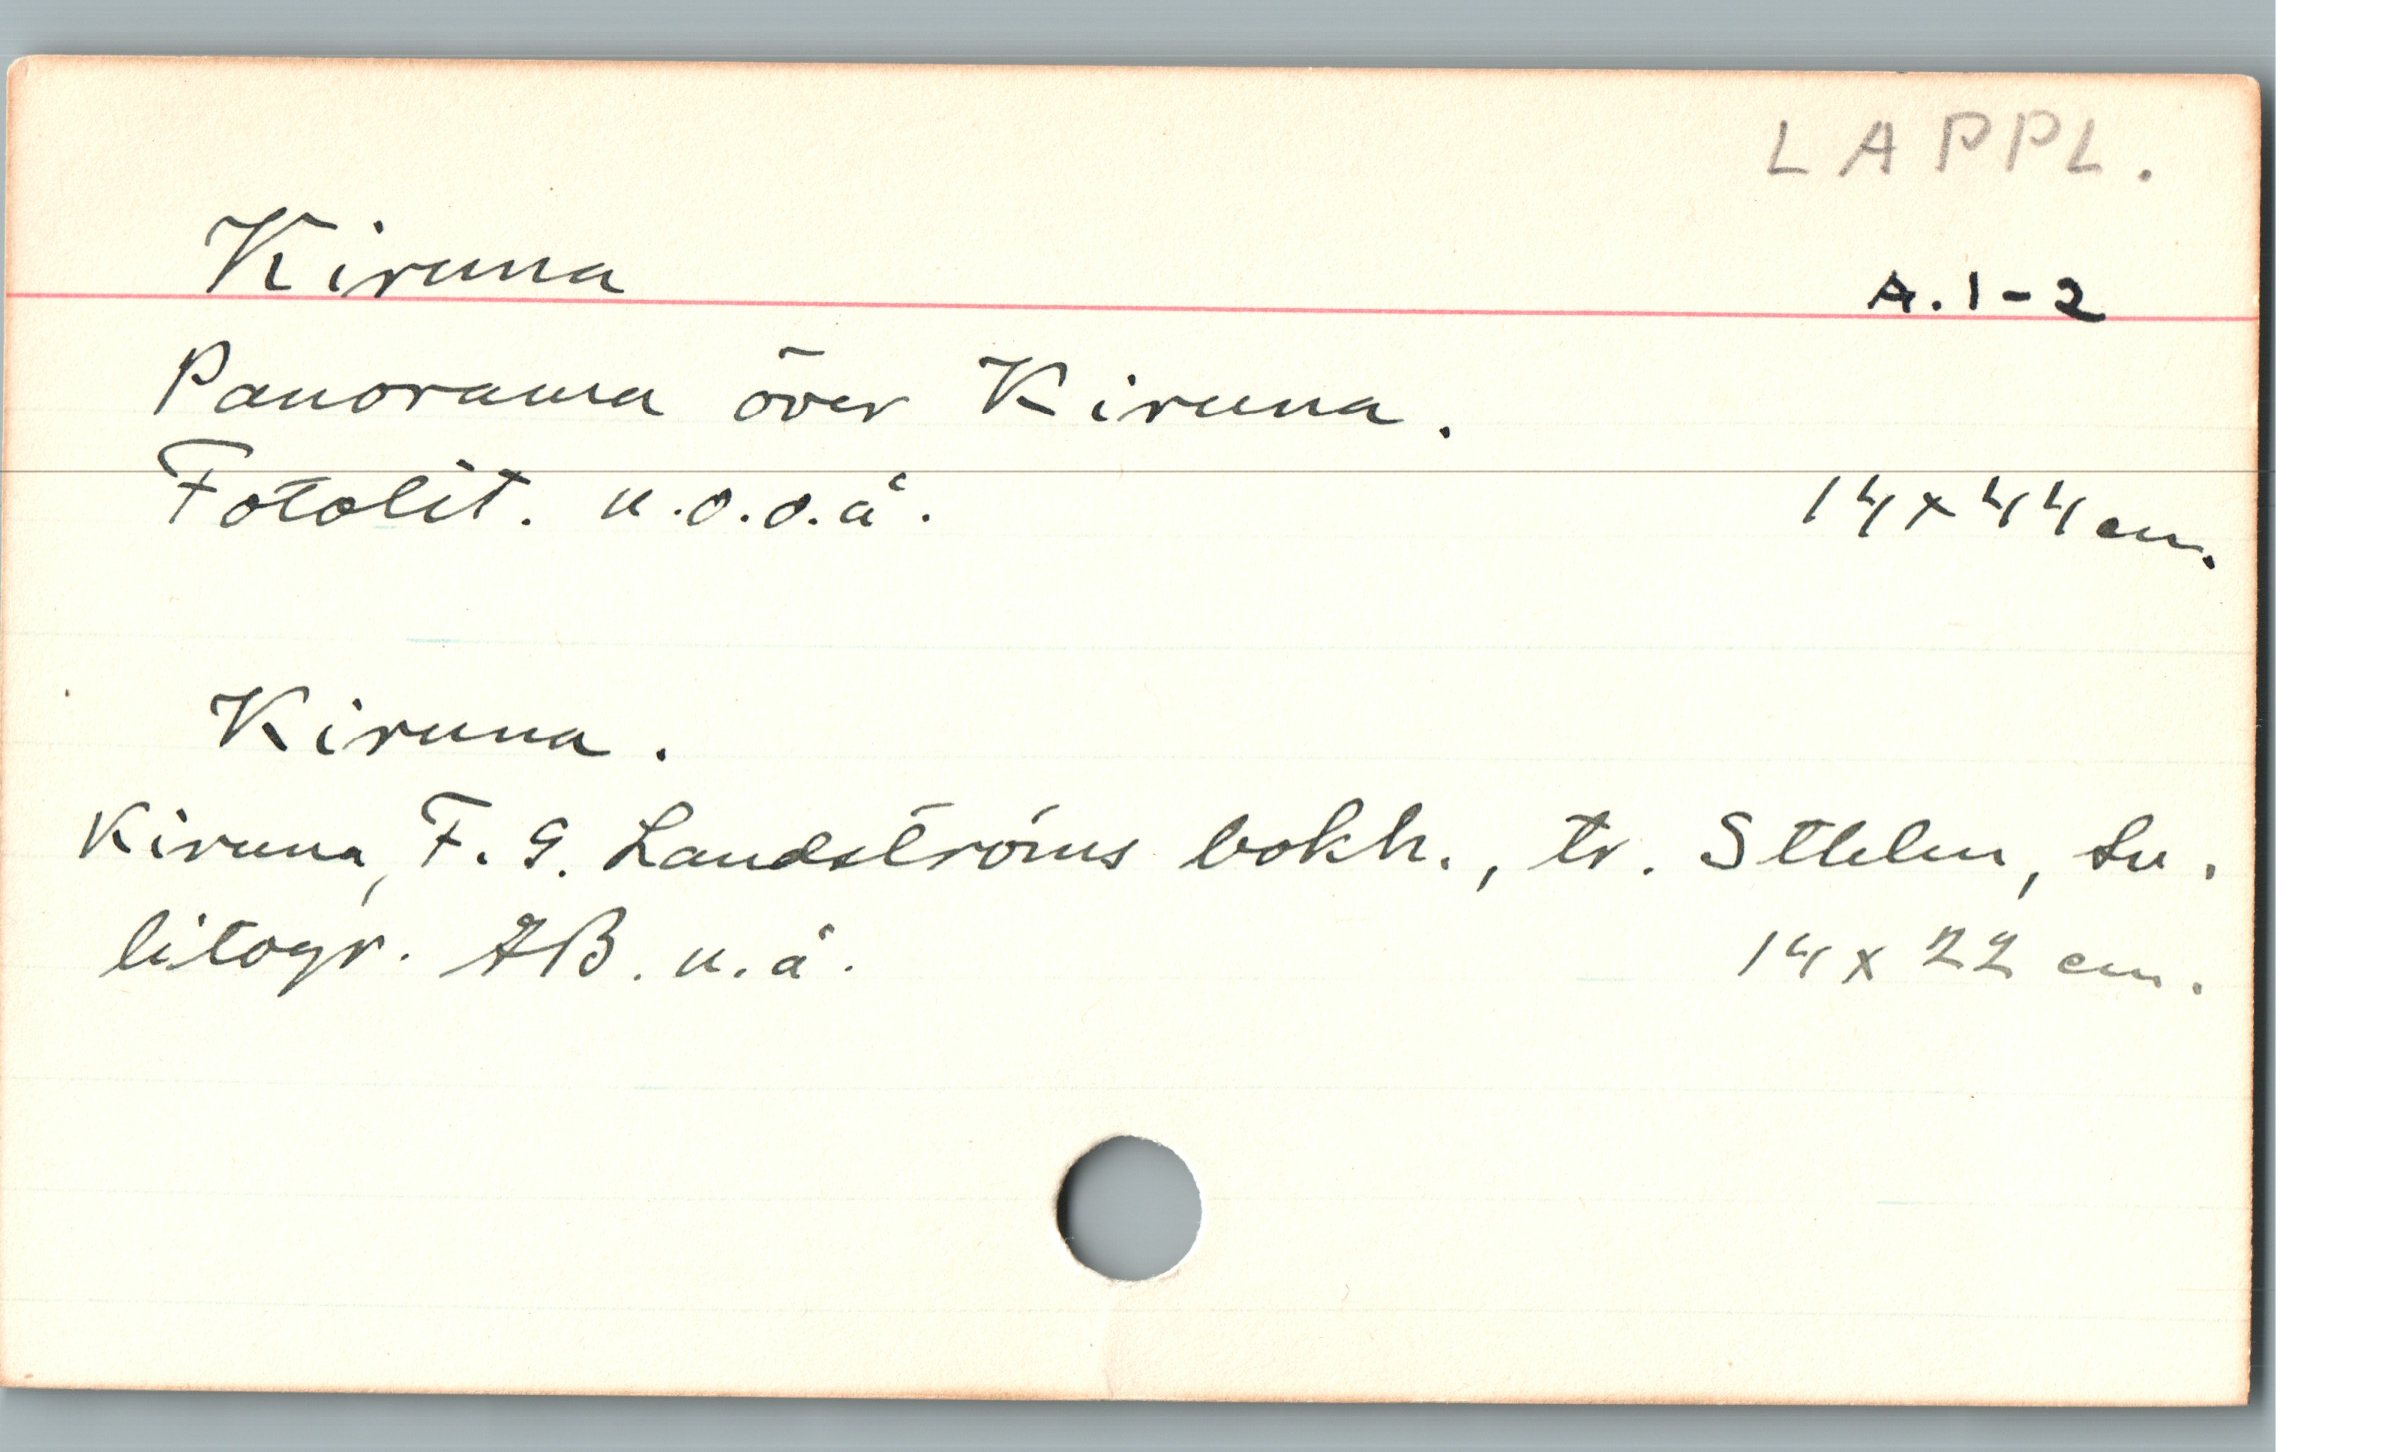 LAPPL.
Kiruna A.1-2
Panorama över Kiruna.
Fotolit. u.o.o.å. 14x44 cm.
Kiruna.
Kiruna, F. G. Landströms bokh., tr. Sthlm, Sv.
litogr. AB. u.å. 14x22 cm.